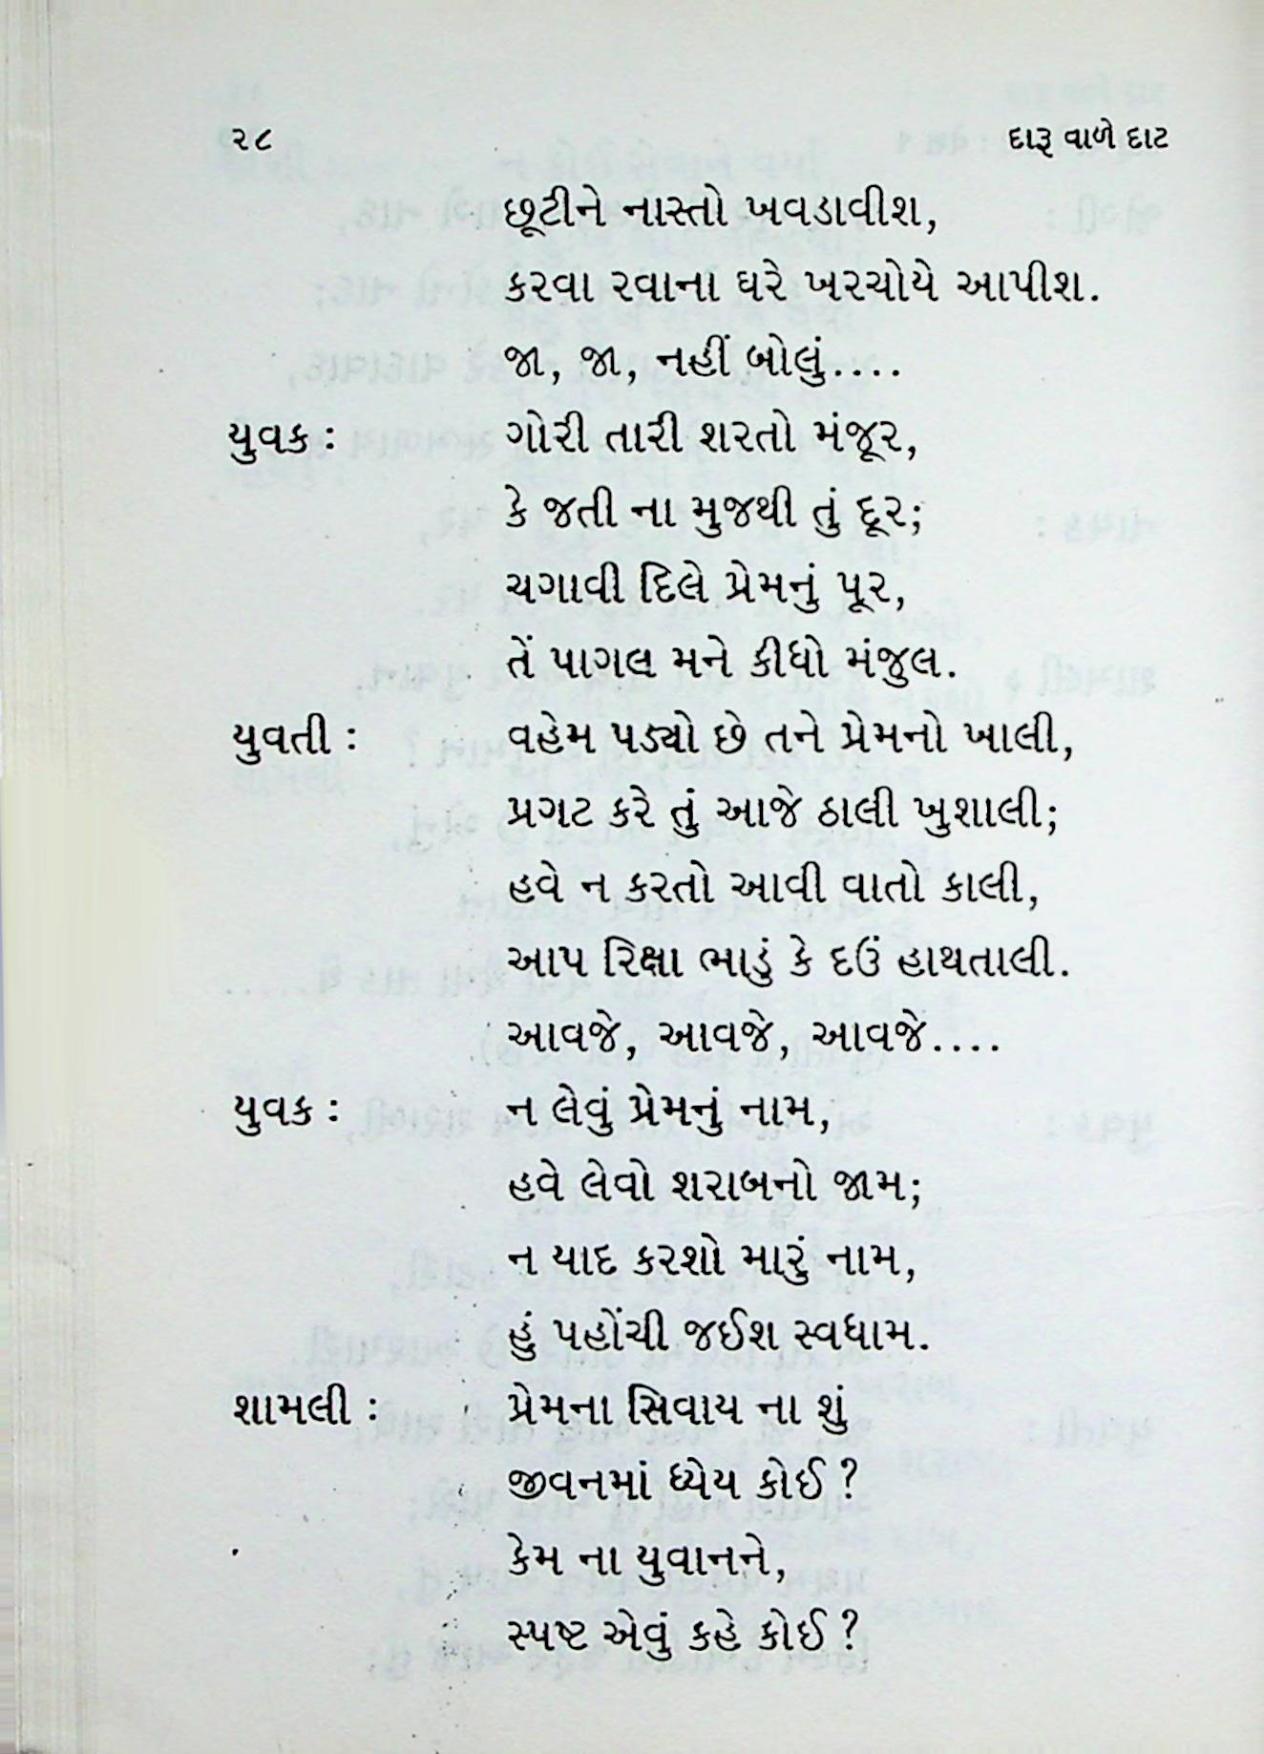 ૨૮ દારૂ વાળે દાટ
છૂટીને નાસ્તો ખવડાવીશ,
કરવા રવાના ઘરે ખરચોયે આપીશ.
જા, જા, નહીં બોલું....
યુવક : ગોરી તારી શરતો મંજૂર,
કે જતી ના મુજથી તું દૂર;
ચગાવી દિલે પ્રેમનું પૂર,
તેં પાગલ મને કીધો મંજુલ.
યુવતી : વહેમ પડ્યો છે તને પ્રેમનો ખાલી,
પ્રગટ કરે તું આજે ઠાલી ખુશાલી;
હવે ન કરતો આવી વાતો કાલી,
આપ રિક્ષા ભાડું કે દઉં હાથતાલી.
આવજે, આવજે, આવજે....
યુવક : ન લેવું પ્રેમનું નામ,
હવે લેવો શરાબનો જામ;
ન યાદ કરશો મારું નામ,
હું પહોંચી જઈશ સ્વધામ.
શામલી : પ્રેમના સિવાય ના શું
જીવનમાં ધ્યેય કોઈ ?
કેમ ના યુવાનને,
સ્પષ્ટ એવું કહે કોઈ ?